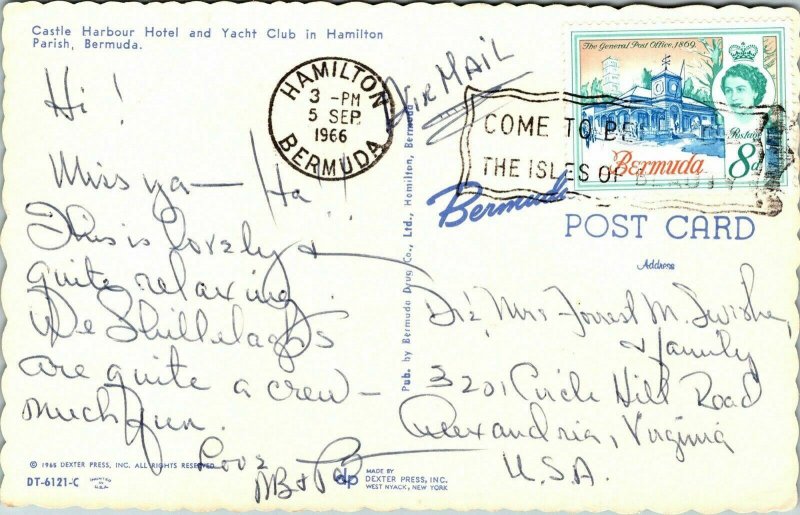 Castle Harbour Hotel and Yacht Club in Hamilton
Parish, Bermuda.
Hi!
Miss ya — Ha!!
This is lovely &
quite relaxing.
We Shillelaghs
are quite a crew —
much fun.
Love
MB &
Air Mail
HAMILTON
3 -PM
5 SEP
1966
BERMUDA
COME TO BE
THE ISLES OF BEAUTY
The General Post Office, 1869
Postage
Bermuda
8
Bermuda
POST CARD
Address
Dr & Mrs Forrest M. Swisher
& family
3201 Circle Hill Road
Alexandria, Virginia
U.S.A.
Pub. by Bermuda Drug Co., Ltd., Hamilton, Bermuda
© 1965 DEXTER PRESS, INC. ALL RIGHTS RESERVED
DT-6121-C
PRINTED IN U.S.A.
dp
MADE BY
DEXTER PRESS, INC.
WEST NYACK, NEW YORK